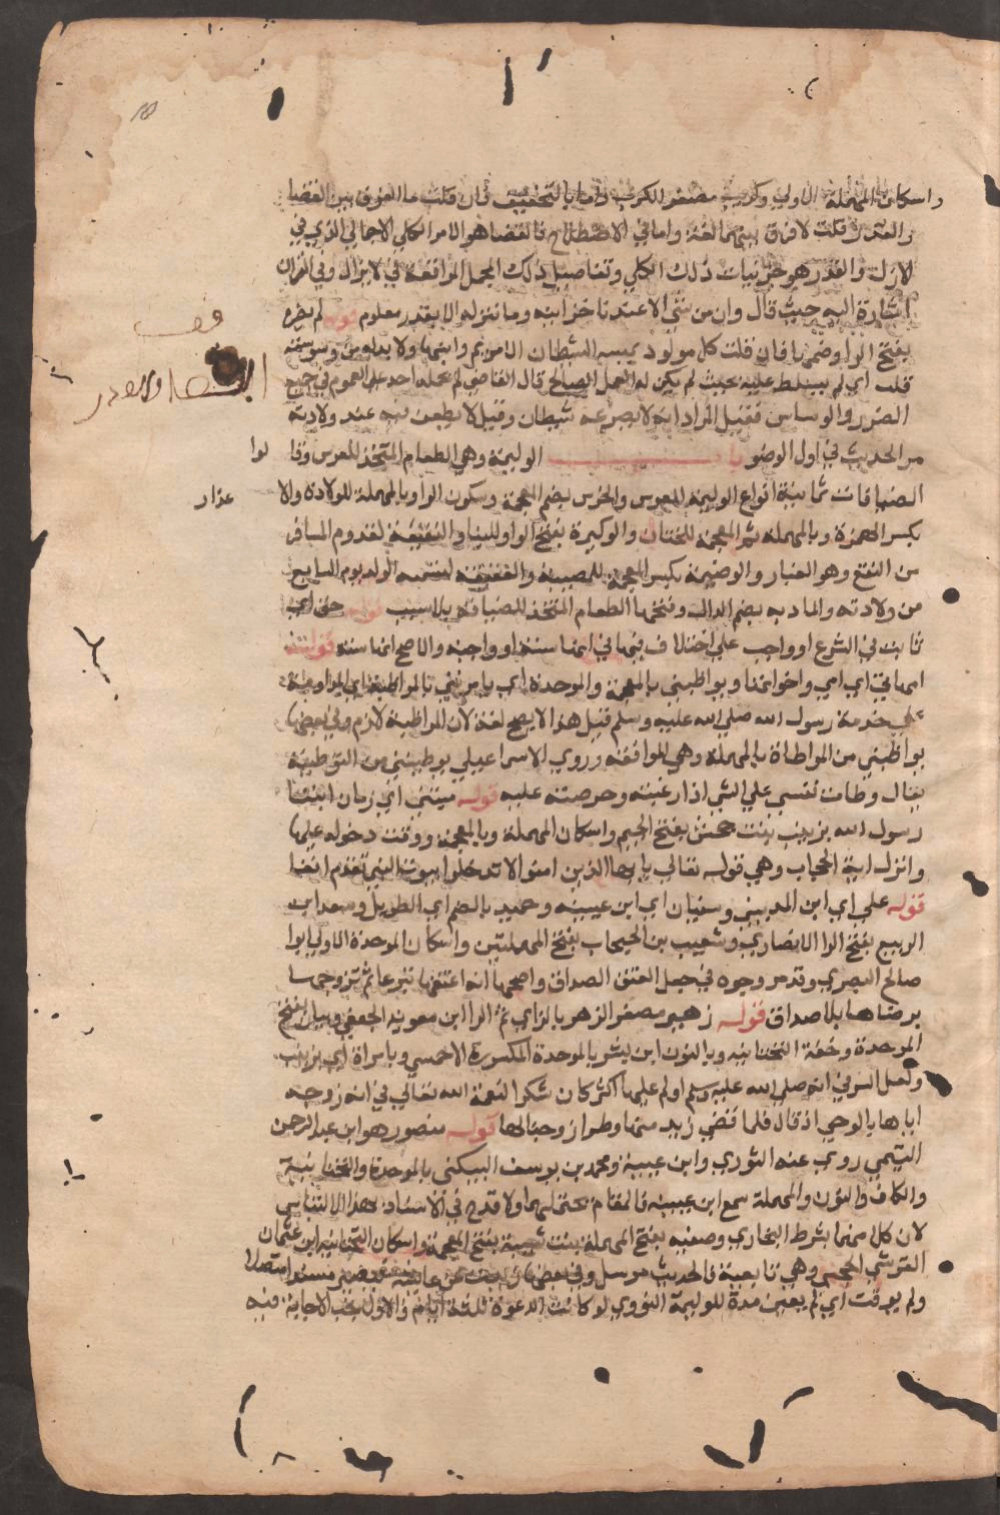 واسكان المهملة الاولى وكريب مصغر الكرب وانما بالتخفيف فان قلت ما الفرق بين القضا
والقدر قلت لا فرق بينهما لغة واما في الاصطلاح فالقضا هو الامر الكلي الاجمالي الذي في
الازل والقدر هو جزئيات ذلك الكلي وتفاصيل ذلك المجمل الواقعة في لايزال وفي القران
اشارة اليه حيث قال وان من شي الا عندنا خزاينه وما ننزله الا بقدر معلوم قوله لم يضره
بفتح الرا وضمها فان قلت كل مولود يمسه الشيطان الا مريم وابنها ولا بد له من وسوسته
قلت اي لم يسلط عليه بحيث لم يكن له العمل الصالح قال القاضي لم يحمله احد على العموم في جميع
الضرر والوساس فقيل المراد انه لا يصرعه شيطان وقيل لا يطعن فيه عند ولادته
مر الحديث في اول الوضو باب الوليمة وهي الطعام المتخذ للعرس وقالوا
الضيافات ثمانية انواع الوليمة للعروس والخرس بضم المعجمة وسكون الرا وبالمهملة للولادة والاعذار
بكسر الهمزة وبالمهملة ثم المعجمة للختان والوكيرة بفتح الواو للبنا والنقيعة لقدوم المسافر
من النقع وهو الغبار والوضيمة بكسر المعجمة للمصيبة والعقيقة لتسمية الولد يوم السابع
من ولادته والمادبه بضم الدال وفتحها الطعام المتخذ للضيافة بلا سبب قوله حق اي
ثابت في الشرع او واجب على اختلاف فيها في انها سنة او واجبة والاصح انها سنة قوله
امهاتي اي امي واخواتها ويواظبنني بالمعجمة والموحدة اي يامرنني بالمواظبة اي المداومة
على خدمة رسول الله صلى الله عليه وسلم قيل هذا لا يصح لغة لان المواظبة لازم وفي بعضها
يواطيني من المواطاة بالمهملة وهي الموافقة وروي الاسماعيلي يوطينني من التوطية
يقال وطات نفسي علي الشي اذا رغبته وحرصته عليه قوله مبتنى اي زمان ابتنا
رسول الله بزينب بنت جحش بفتح الجيم واسكان المهملة وبالمعجمة ووقت دخوله عليها
وانزل اية الحجاب وهي قوله تعالى يا ايها الذين امنوا لا تدخلوا بيوت النبي تقدم انفا
قوله علي اي ابن المديني وسفيان اي ابن عيينه وحميد بالضم اي الطويل وسعد ابن
الربيع بفتح الرا الانصاري وشعيب بن الحبحاب بفتح المهملتين واسكان الموحدة الاولى ابوا
صالح البصري وقد مر وجوه في جعل العتق الصداق واصحها انه اعتقها تبرعا ثم تزوجها
برضاها بلا صداق قوله زهير مصغر الزهر بالزاي ثم الرا ابن معوية الجعفي وبيان بفتح
الموحدة وخفة التحتانيه وبالنون ابن بشر بالموحدة المكسورة الاحمسي وبامراة اي بزينب
ولعل السر في انه صلى الله عليه وسلم اولم عليها اكثر كان شكرا لنعمة الله تعالى في انه زوجه
اياها بالوحي اذ قال فلما قضي زيد منها وطرا زوجناكها قوله منصور هو ابن عبد الرحمن
التيمي روي عنه الثوري وابن عيينة ومحمد بن يوسف البيكندي بالموحدة والتحتانية
والكاف والنون والمهملة سمع ابن عيينة فالمقام يحتملهما ولا قدح في الاسناد بهذا الالتباس
لان كلا منهما بشرط البخاري وصفيه بفتح المهملة بنت شيبة بفتح المعجمة واسكان التحتانيه ابن عثمان
القرشي الحجبي وهي تابعية فالحديث مرسل وفي بعضها زيدت عن عايشة فيصير مسندا متصلا
ولم يوقت اي لم يعين مدة للوليمة النووي لو كانت الدعوة ثلثة ايام فالاول يجب الاجابة فيه
قف
القضا والقدر